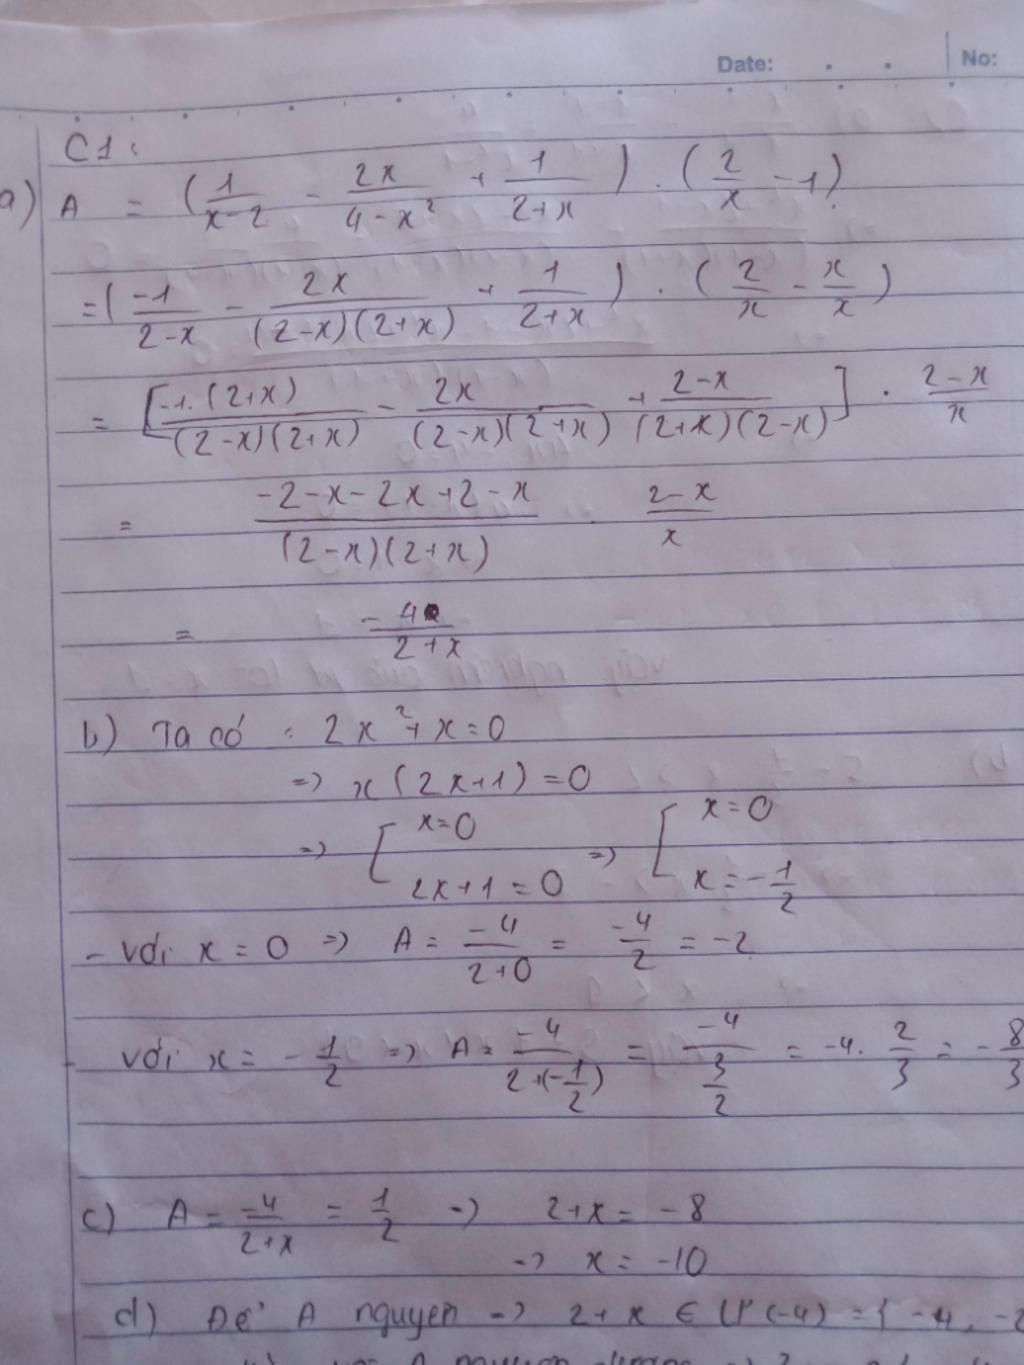 Date: . . No:
C1:
a) A = (1/(x-2) - 2x/(4-x²) + 1/(2+x)) . (2/x - 1)
= (-1/(2-x) - 2x/((2-x)(2+x)) + 1/(2+x)) . (2/x - x/x)
= [-1.(2+x)/((2-x)(2+x)) - 2x/((2-x)(2+x)) + (2-x)/((2+x)(2-x))] . (2-x)/x
= (-2-x-2x+2-x)/((2-x)(2+x)) . (2-x)/x
= -4/(2+x)
b) Ta có : 2x²+x=0
=> x(2x+1)=0
=> [ x=0 ; 2x+1=0 => [ x=0 ; x=-1/2
- với x=0 => A = -4/(2+0) = -4/2 = -2
- với x=-1/2 => A = -4/(2+(-1/2)) = -4/(3/2) = -4. 2/3 = -8/3
c) A = -4/(2+x) = 1/2 => 2+x = -8
=> x = -10
d) Để A nguyen => 2+x ∈ Ư(-4) = { -4, -2